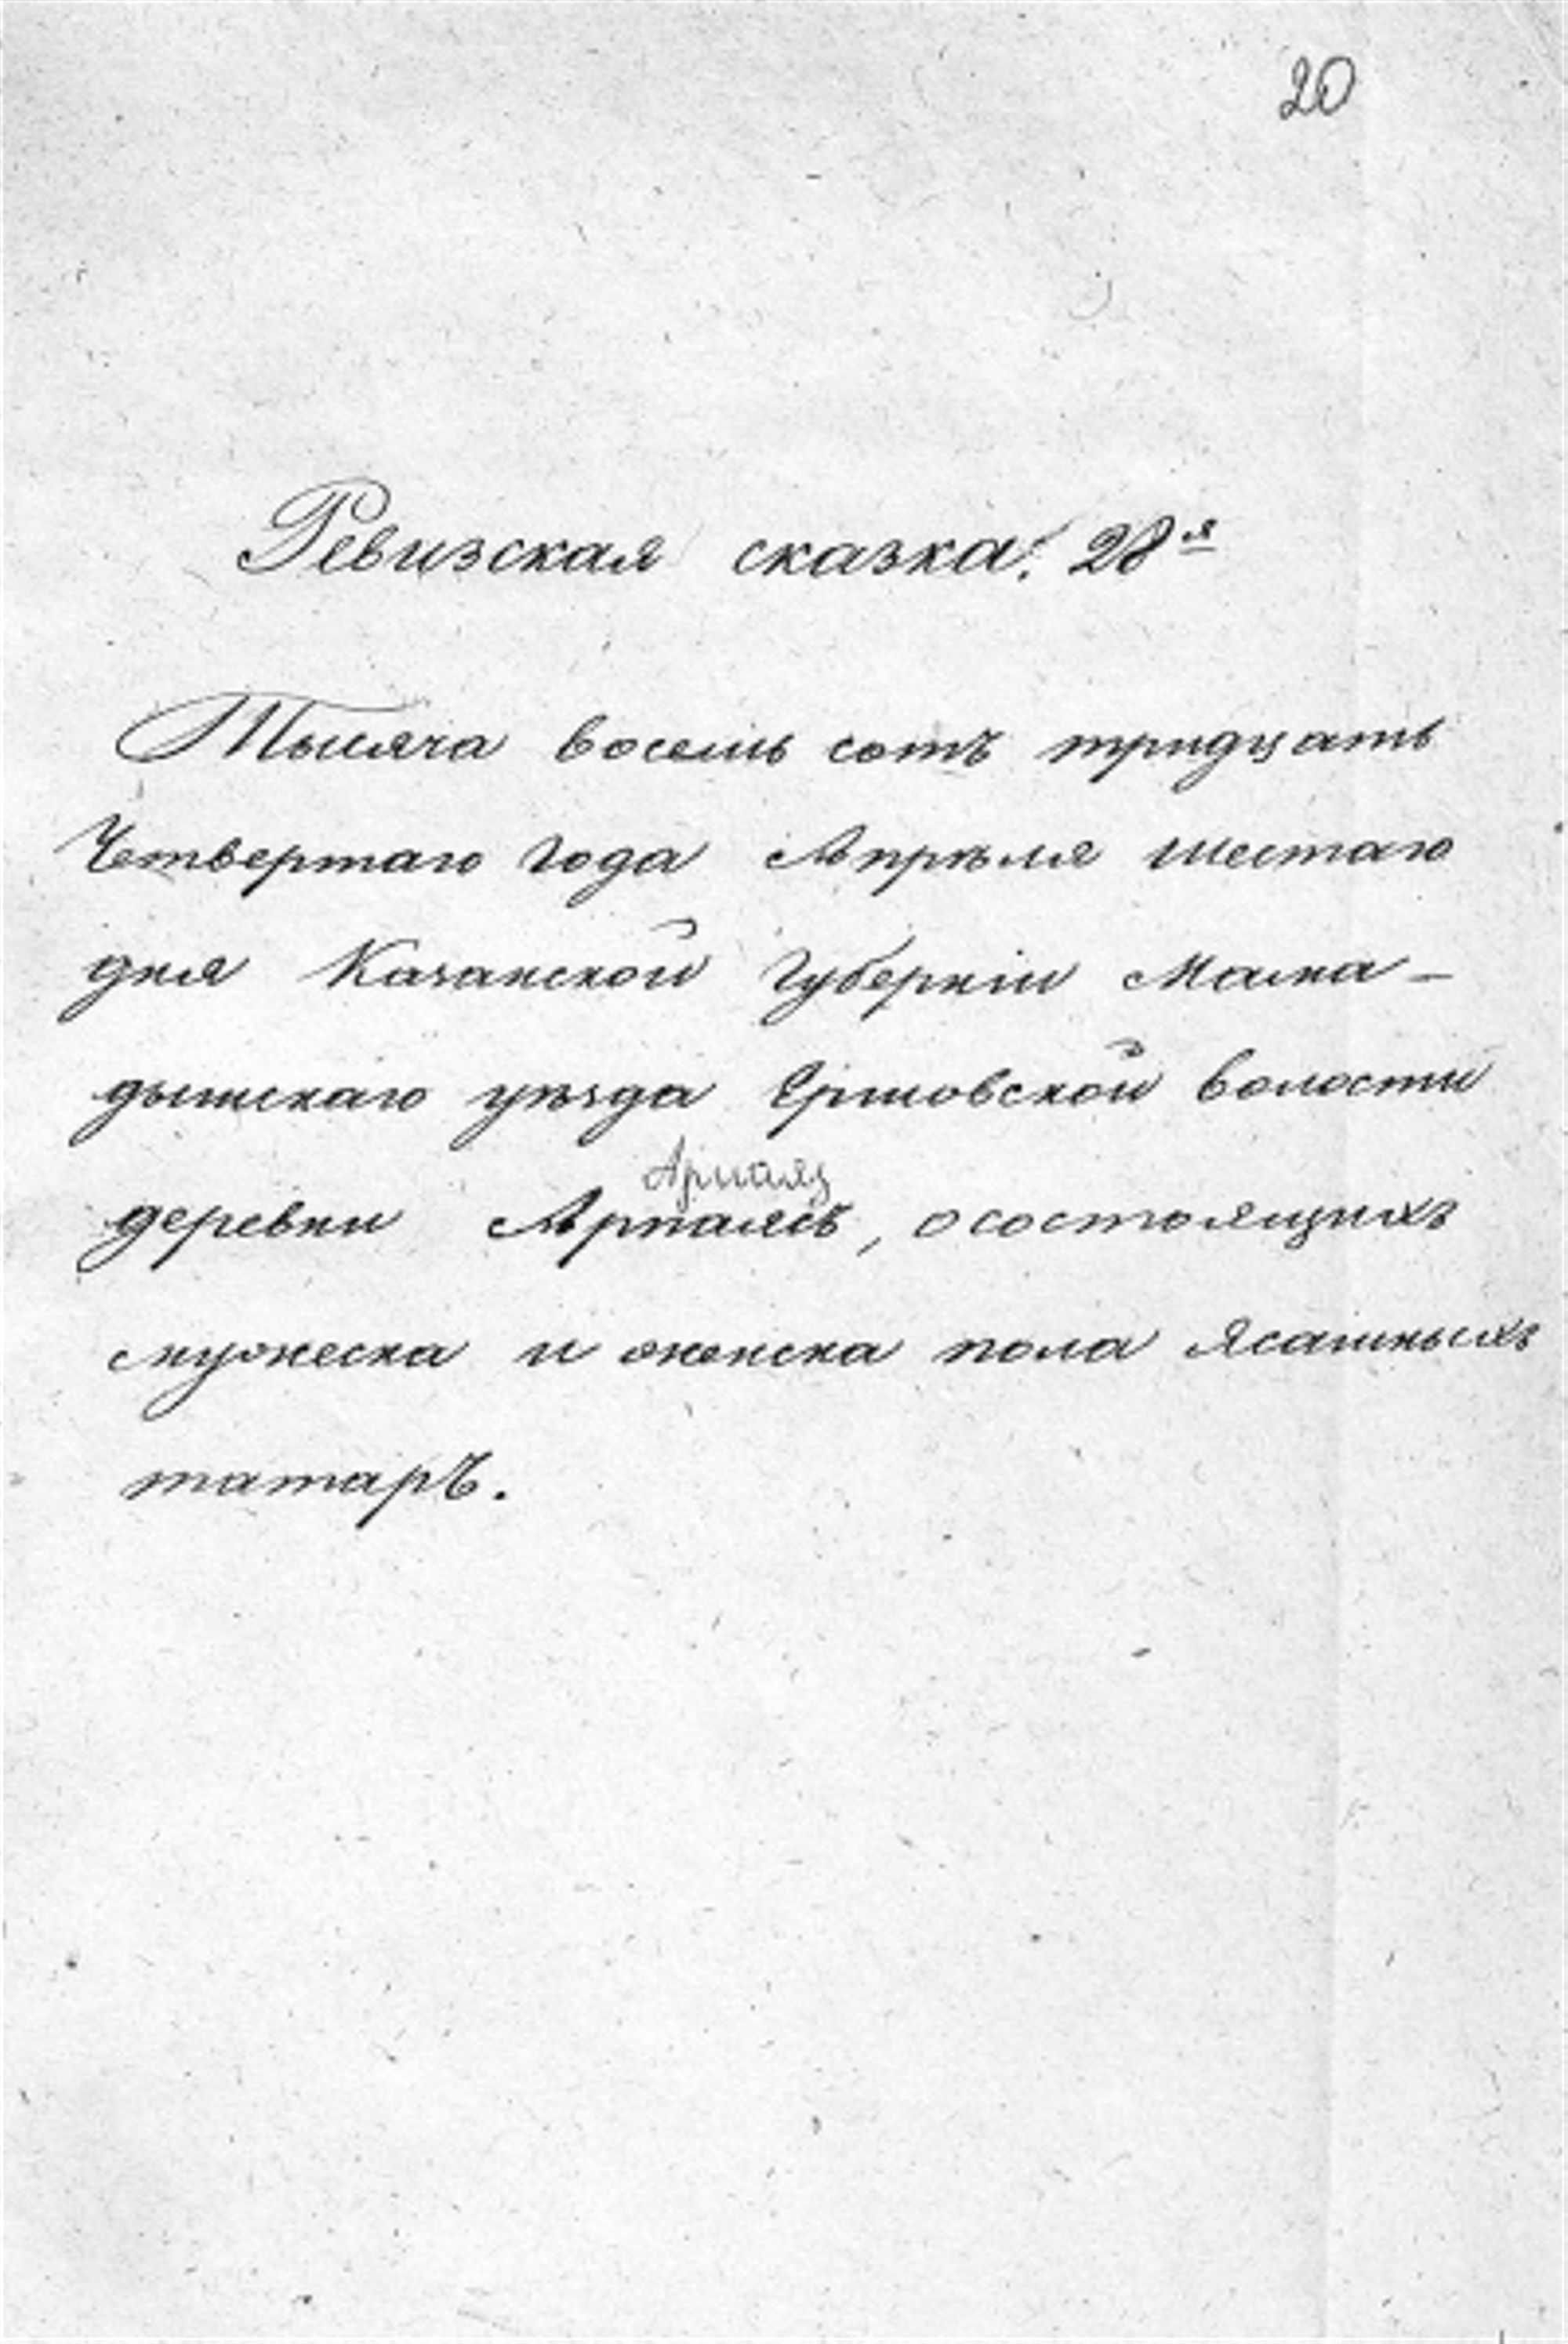 20
Ревизская сказка. 28я
Тысяча восемь сотъ тридцать
Четвертаго года Апрѣля шестаго
дня Казанской Губерніи Мама-
дышскаго уѣзда Ершовской волости
деревни Арпаясъ, о состоящихъ
мужеска и женска пола Ясашныхъ
татаръ.